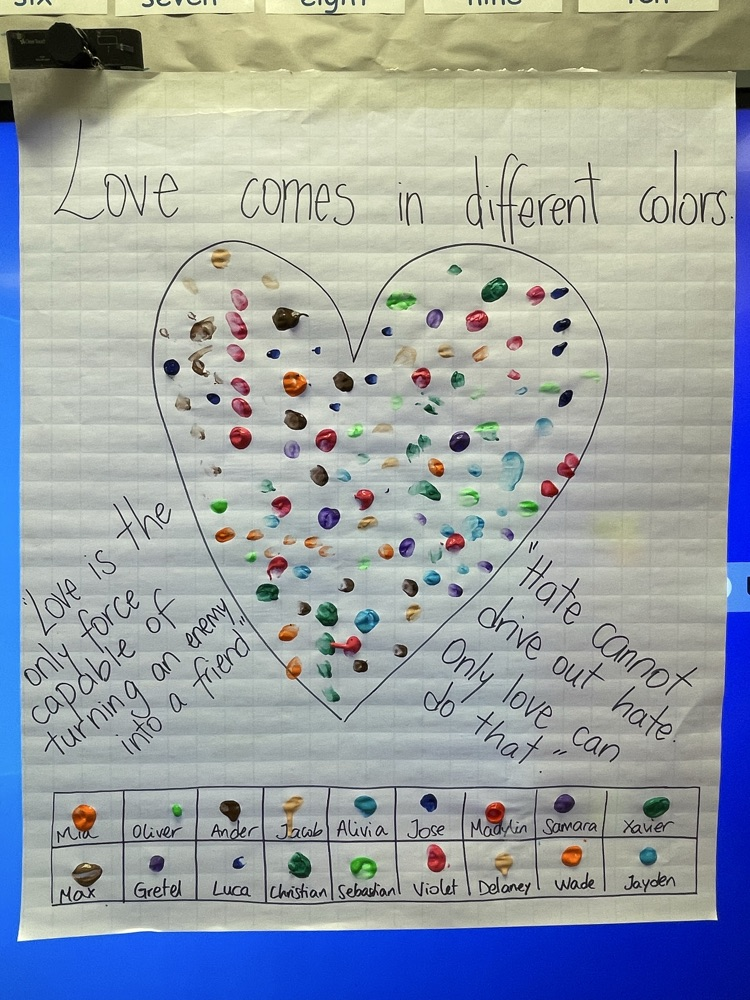 six seven eight nine ten
Love comes in different colors.
"Love is the
only force
capable of
turning an enemy
into a friend"
"Hate cannot
drive out hate.
Only love can
do that."
Mia Oliver Ander Jacob Alivia Jose Madylin Samara Xavier
Max Gretel Luca Christian Sebastian Violet Delaney Wade Jayden